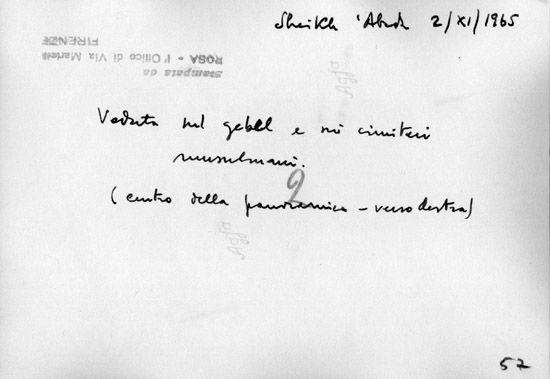 Sheikh 'Abd 2/XI/1965
Stampata da
ROSA - l'Ottico di Via Martelli
FIRENZE
Veduta sul gebel e sui cimiteri
musulmani.
2
(centro della panoramica - verso destra)
Agfa
Agfa
57